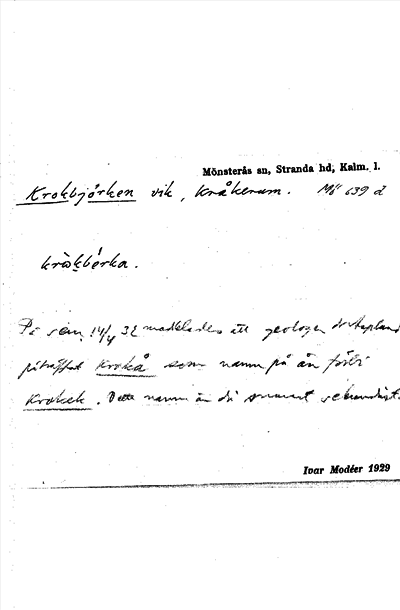 Mönsterås sn, Stranda hd, Kalm. l.
Krokbjörken vik, Kråkerum. Mö 639 d
kròkbérka.
På sem. 14/4 32 meddelades att geologen Asplund
påträffat Krokå som namn på ån förbi
Krokek. Detta namn är då snarast sekundärt.
Ivar Modéer 1929